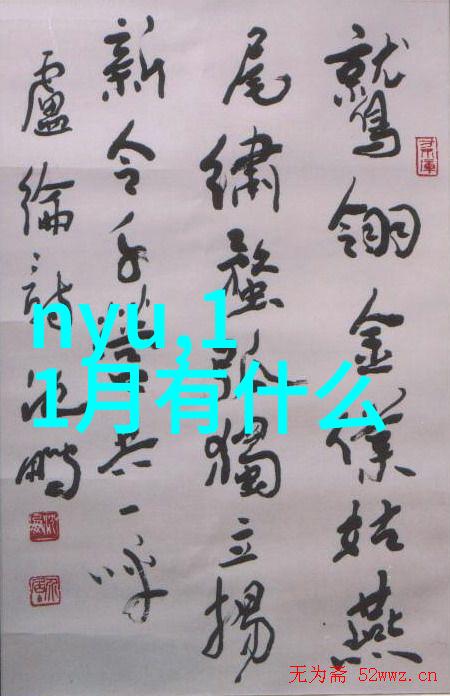 鷲翎金僕姑燕
尾繡蝥弧獨立揚
新令千營共一呼
盧綸詩沈鵬
nyu,1
1月有什么
无为斋 52wwz.cn